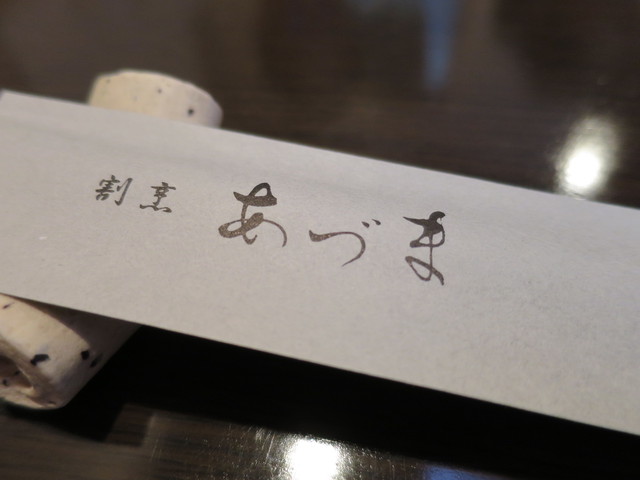 割烹 あづま